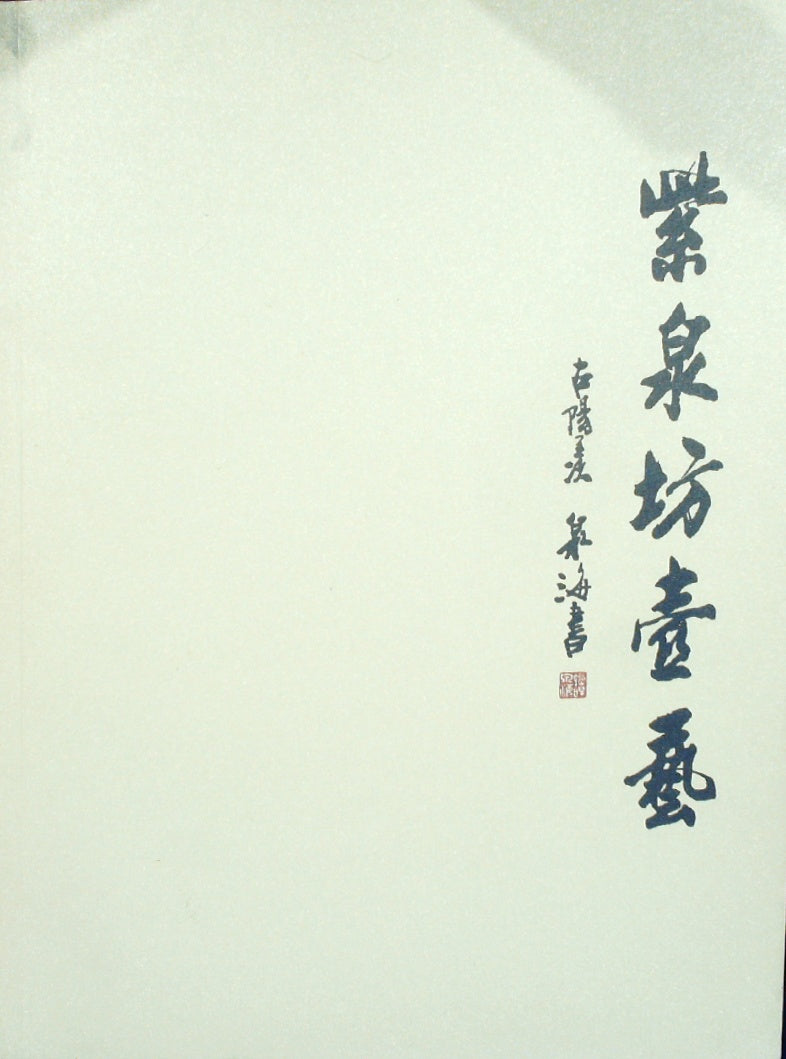 紫泉坊壺藝
古陽羨 泉海書